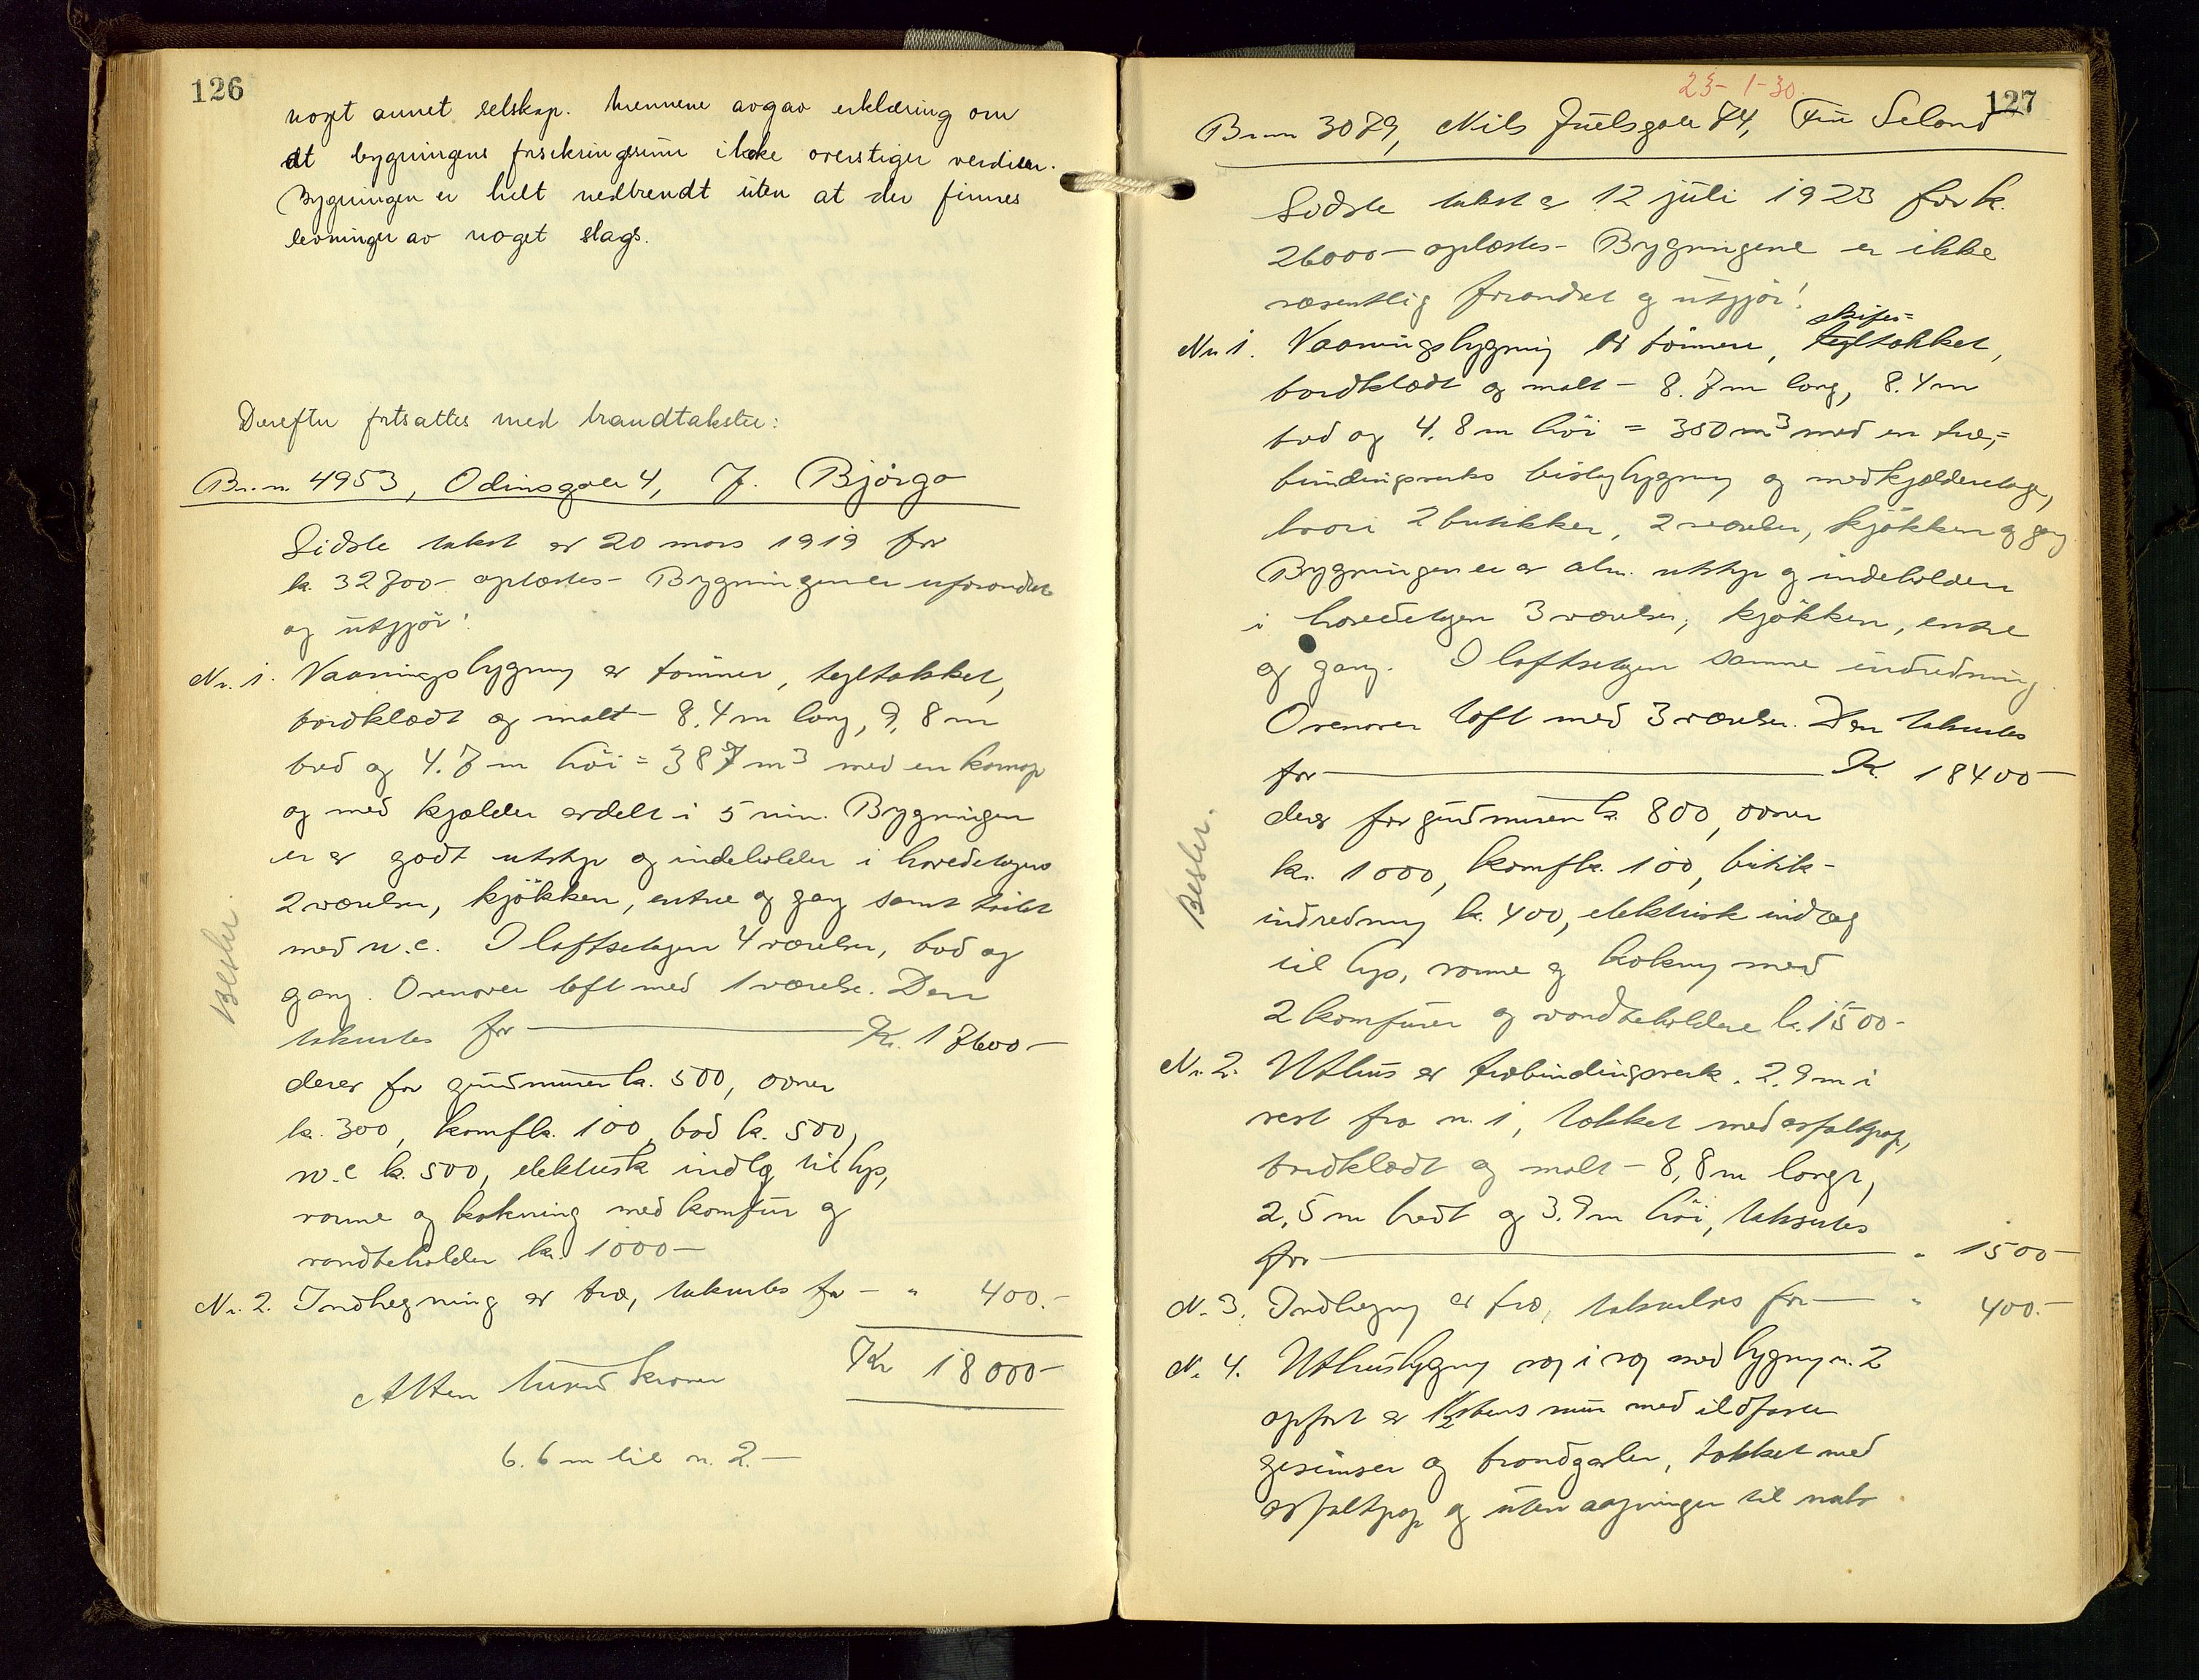 126
noget annet selskap. Mennene avgav erklæring om
at bygningens forsikringssum ikke overstiger verdien.
Bygningen er helt nedbrendt uten at der finnes
levninger av noget slags.
Derefter fortsattes med brandtakster:
Br.nr. 4953, Odinsgate 4, J. Bjørgo
Sidste takst av 20 mars 1919 for
kr. 32700- oplæstes- Bygningen er uforandret
og utgjør:
Nr. 1. Vaaningsbygning av tømmer, tegltækket,
bordklædt og malt- 8.4 m lang, 9.8 m
bred og 4.7 m høi = 387 m3 med en kvist
og med kjælder avdelt i 5 rum. Bygningen
er av godt utstyr og indeholder i hovedetagen
2 værelser, kjøkken, entre og gang samt toilet
med w.c. I loftsetagen 4 værelser, bad og
gang. Ovenover loft med 1 værelse. Den
takseres for Kr. 17600-
Besktr.
derav for grundmuren kr. 500, ovner
kr. 300, komf kr. 100, bad kr. 500,
w.c kr. 500, elektrisk indlæg til lys,
varme og kokning med komfur og
vandbeholder kr. 1000-
Nr. 2. Indhegning av træ, takseres for - " 400.-
Kr 18000-
Atten tusind kroner
6.6 m til nr. 2.-
23-1-30.
127
Br.nr 3079, Nils Juelsgate 74, Finn Seland
Sidste takst av 12 juli 1923 for kr.
26000- oplæstes- Bygningene er ikke
væsentlig forandret og utgjør:
skifer=
Nr. 1. Vaaningsbygning av tømmer, tegltækket,
bordklædt og malt- 8.7 m lang, 8.4 m
bred og 4.8 m høi = 350 m3 med en træ=
bindingsverks bislagbygning og med kjælderetage,
hvori 2 butikker, 2 værelser, kjøkken og gang
Bygningen er av alm. utstyr og indeholder
i hovedetagen 3 værelser, kjøkken, entre
og gang. I loftsetagen samme indredning
Ovenover loft med 3 værelser. Den takseres
for Kr. 18400-
Besktr.
derav for grundmuren kr. 800, ovner
kr. 1000, komf kr. 100, butik-
indredning kr. 400, elektrisk indlæg
til lys, varme og kokning med
2 komfurer og vandbeholdere kr. 1500-
Nr. 2. Uthus av træbindingsverk. 2.9 m i
vest fra nr. 1, tækket med asfaltpap,
bordklædt og malt- 8,8 m langt,
2,5 m bredt og 3.9 m høi, takseres
for " 1500-
Nr. 3. Indhegning av træ, takseres for - " 400.-
Nr. 4. Uthusbygning væg i væg med bygning nr. 2
opført av 1/2 stens mur med ildfaste
gesimser og brandgavler, tækket med
asfaltpap og uten aapninger til nabo